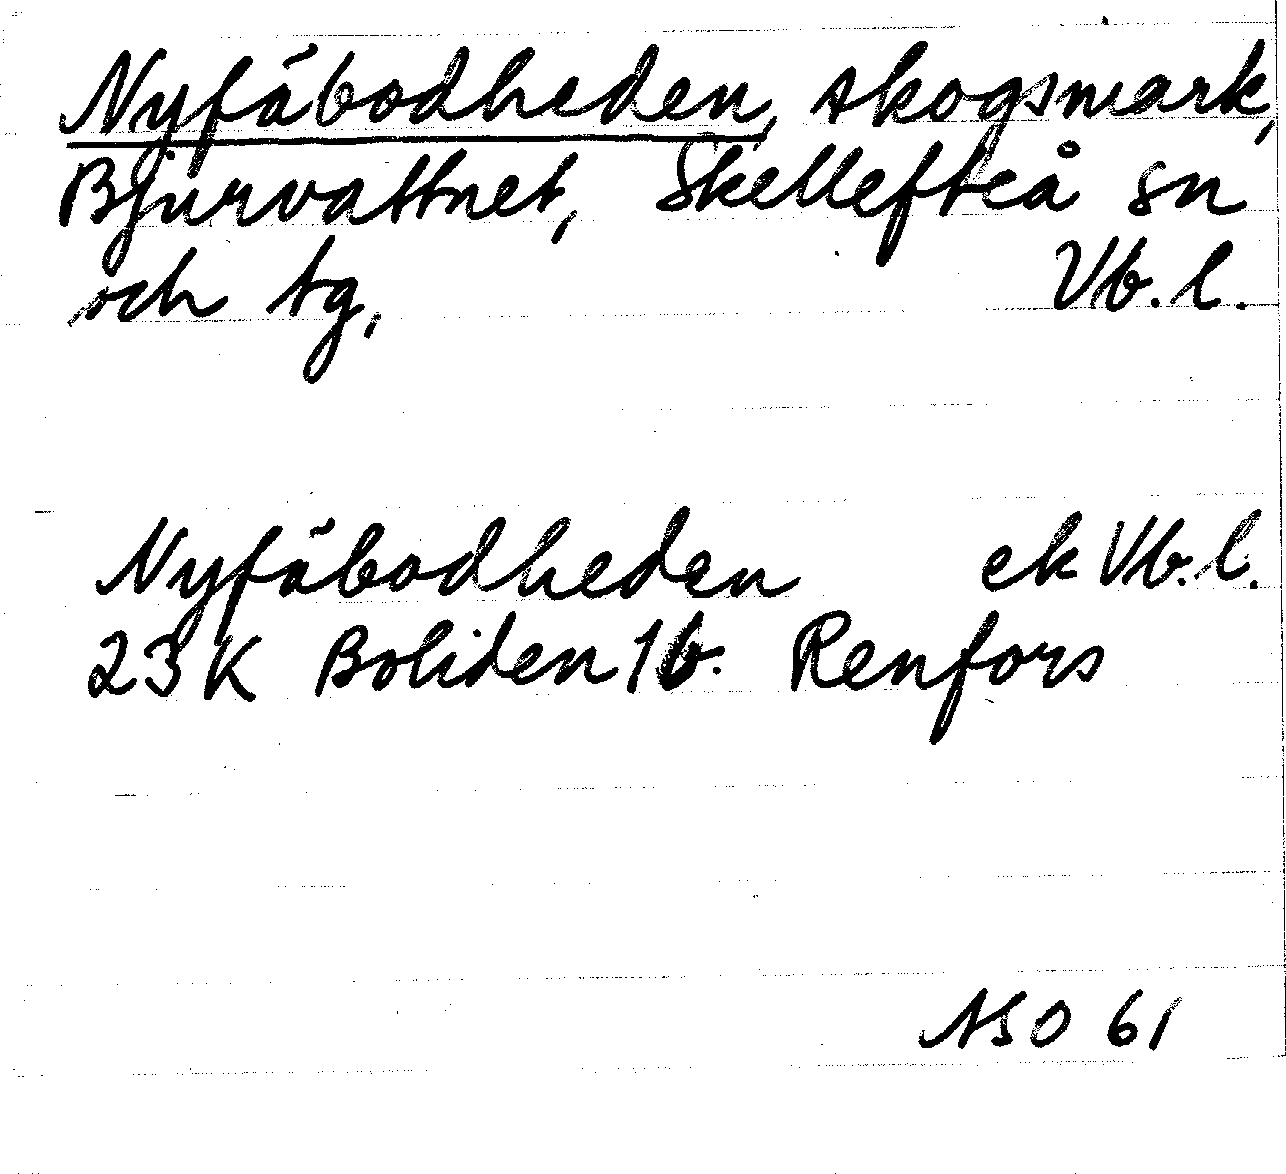 Nyfäbodheden, skogsmark,
Bjurvattnet, Skellefteå sn
och tg, Vb. l.
Nyfäbodheden ek Vb. l.
23 K Boliden 1b. Renfors
ASO 61